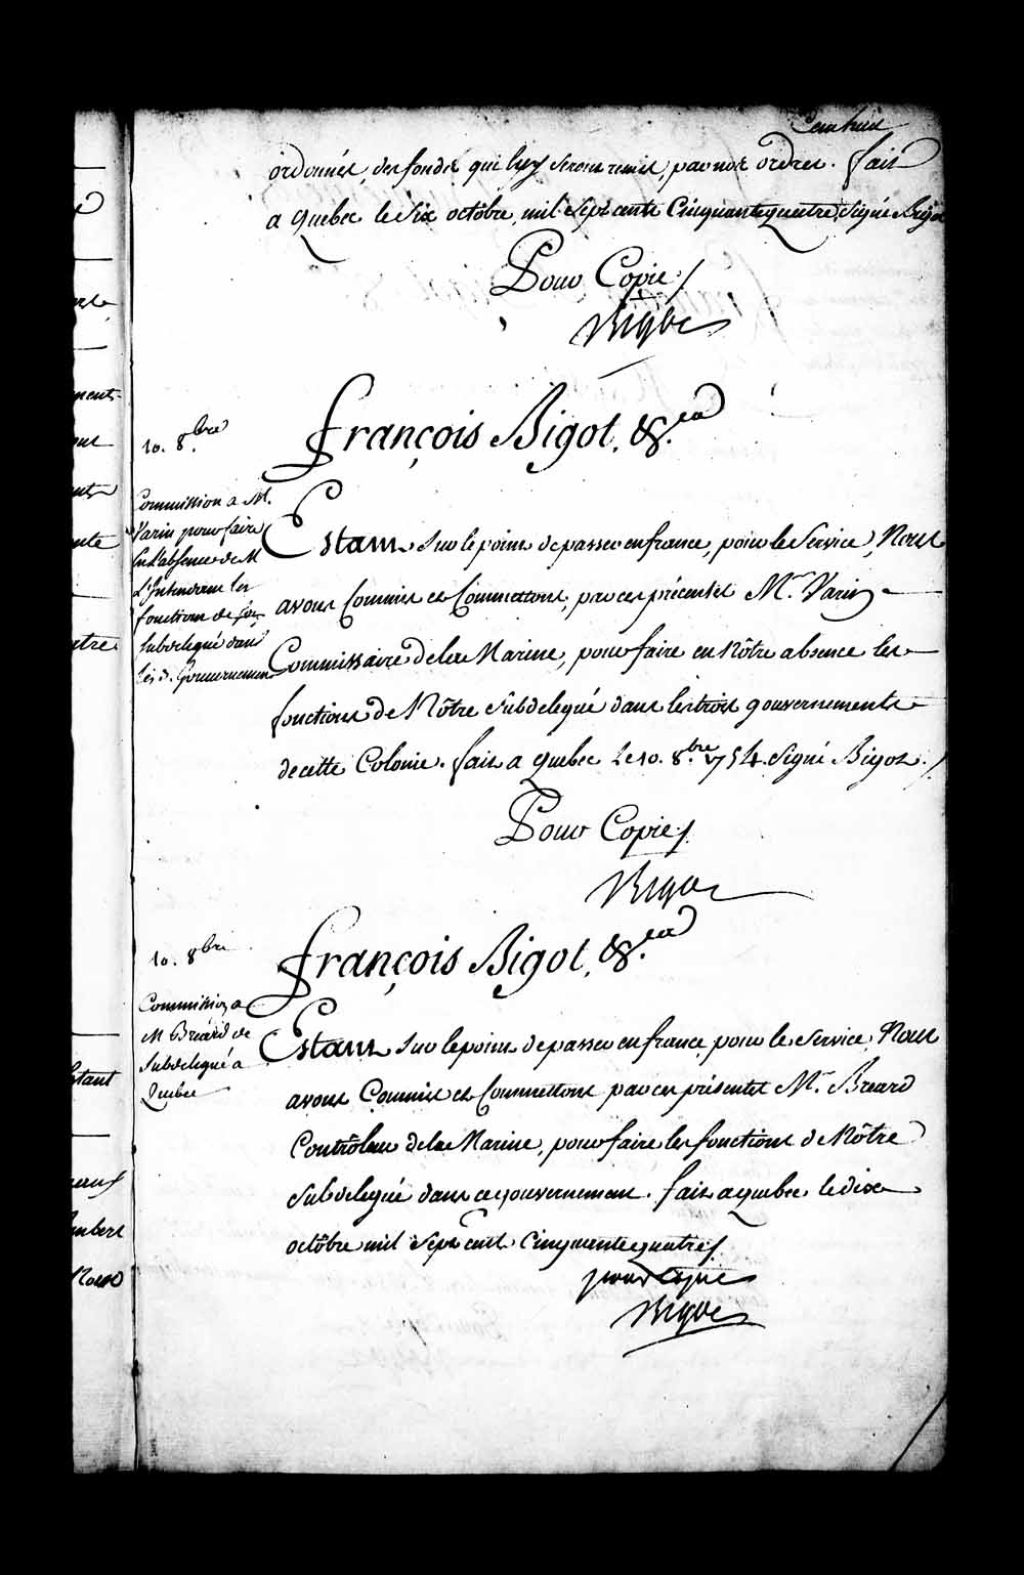 Cent huit
ordonnés, des fonds qui luy seront remis, par nos ordres. fait
a Quebec le Six octôbre, mil Sept cents Cinquante quatre, Signé Bigot
Pour Copie /
Bigot
10. 8.bre
François Bigot, &.ca
Commission a M.
Varin pour faire
En L'absence de M
L'Intendant les
fonctions de Son
Subdelegué dans
les 3. Gouvernemens
Estant Sur le point de passer en france, pour le Service, Nous
avons Commis et Commettons, par ces présentes Mr. Varin
Commissaire de la Marine, pour faire en Nôtre absence les
fonctions de Nôtre Subdelegué dans les trois gouvernements
de cette Colonie. fait a Quebec Le 10. 8.bre 1754. Signé Bigot. /
Pour Copie /.
Bigot
10. 8bre
François Bigot, &.ca
Commission a
M Bréard de
Subdelegué a
Quebec
Estant Sur le point de passer en france, pour le Service, Nous
avons Commis et Commettons par ces présentes Mr. Breard
Contrôleur de la Marine, pour faire les fonctions de Nôtre
Subdelegué dans ce gouvernement. fait a quebec le dix
octôbre mil Sept Cent Cinquante quatre /.
pour copie
Bigot